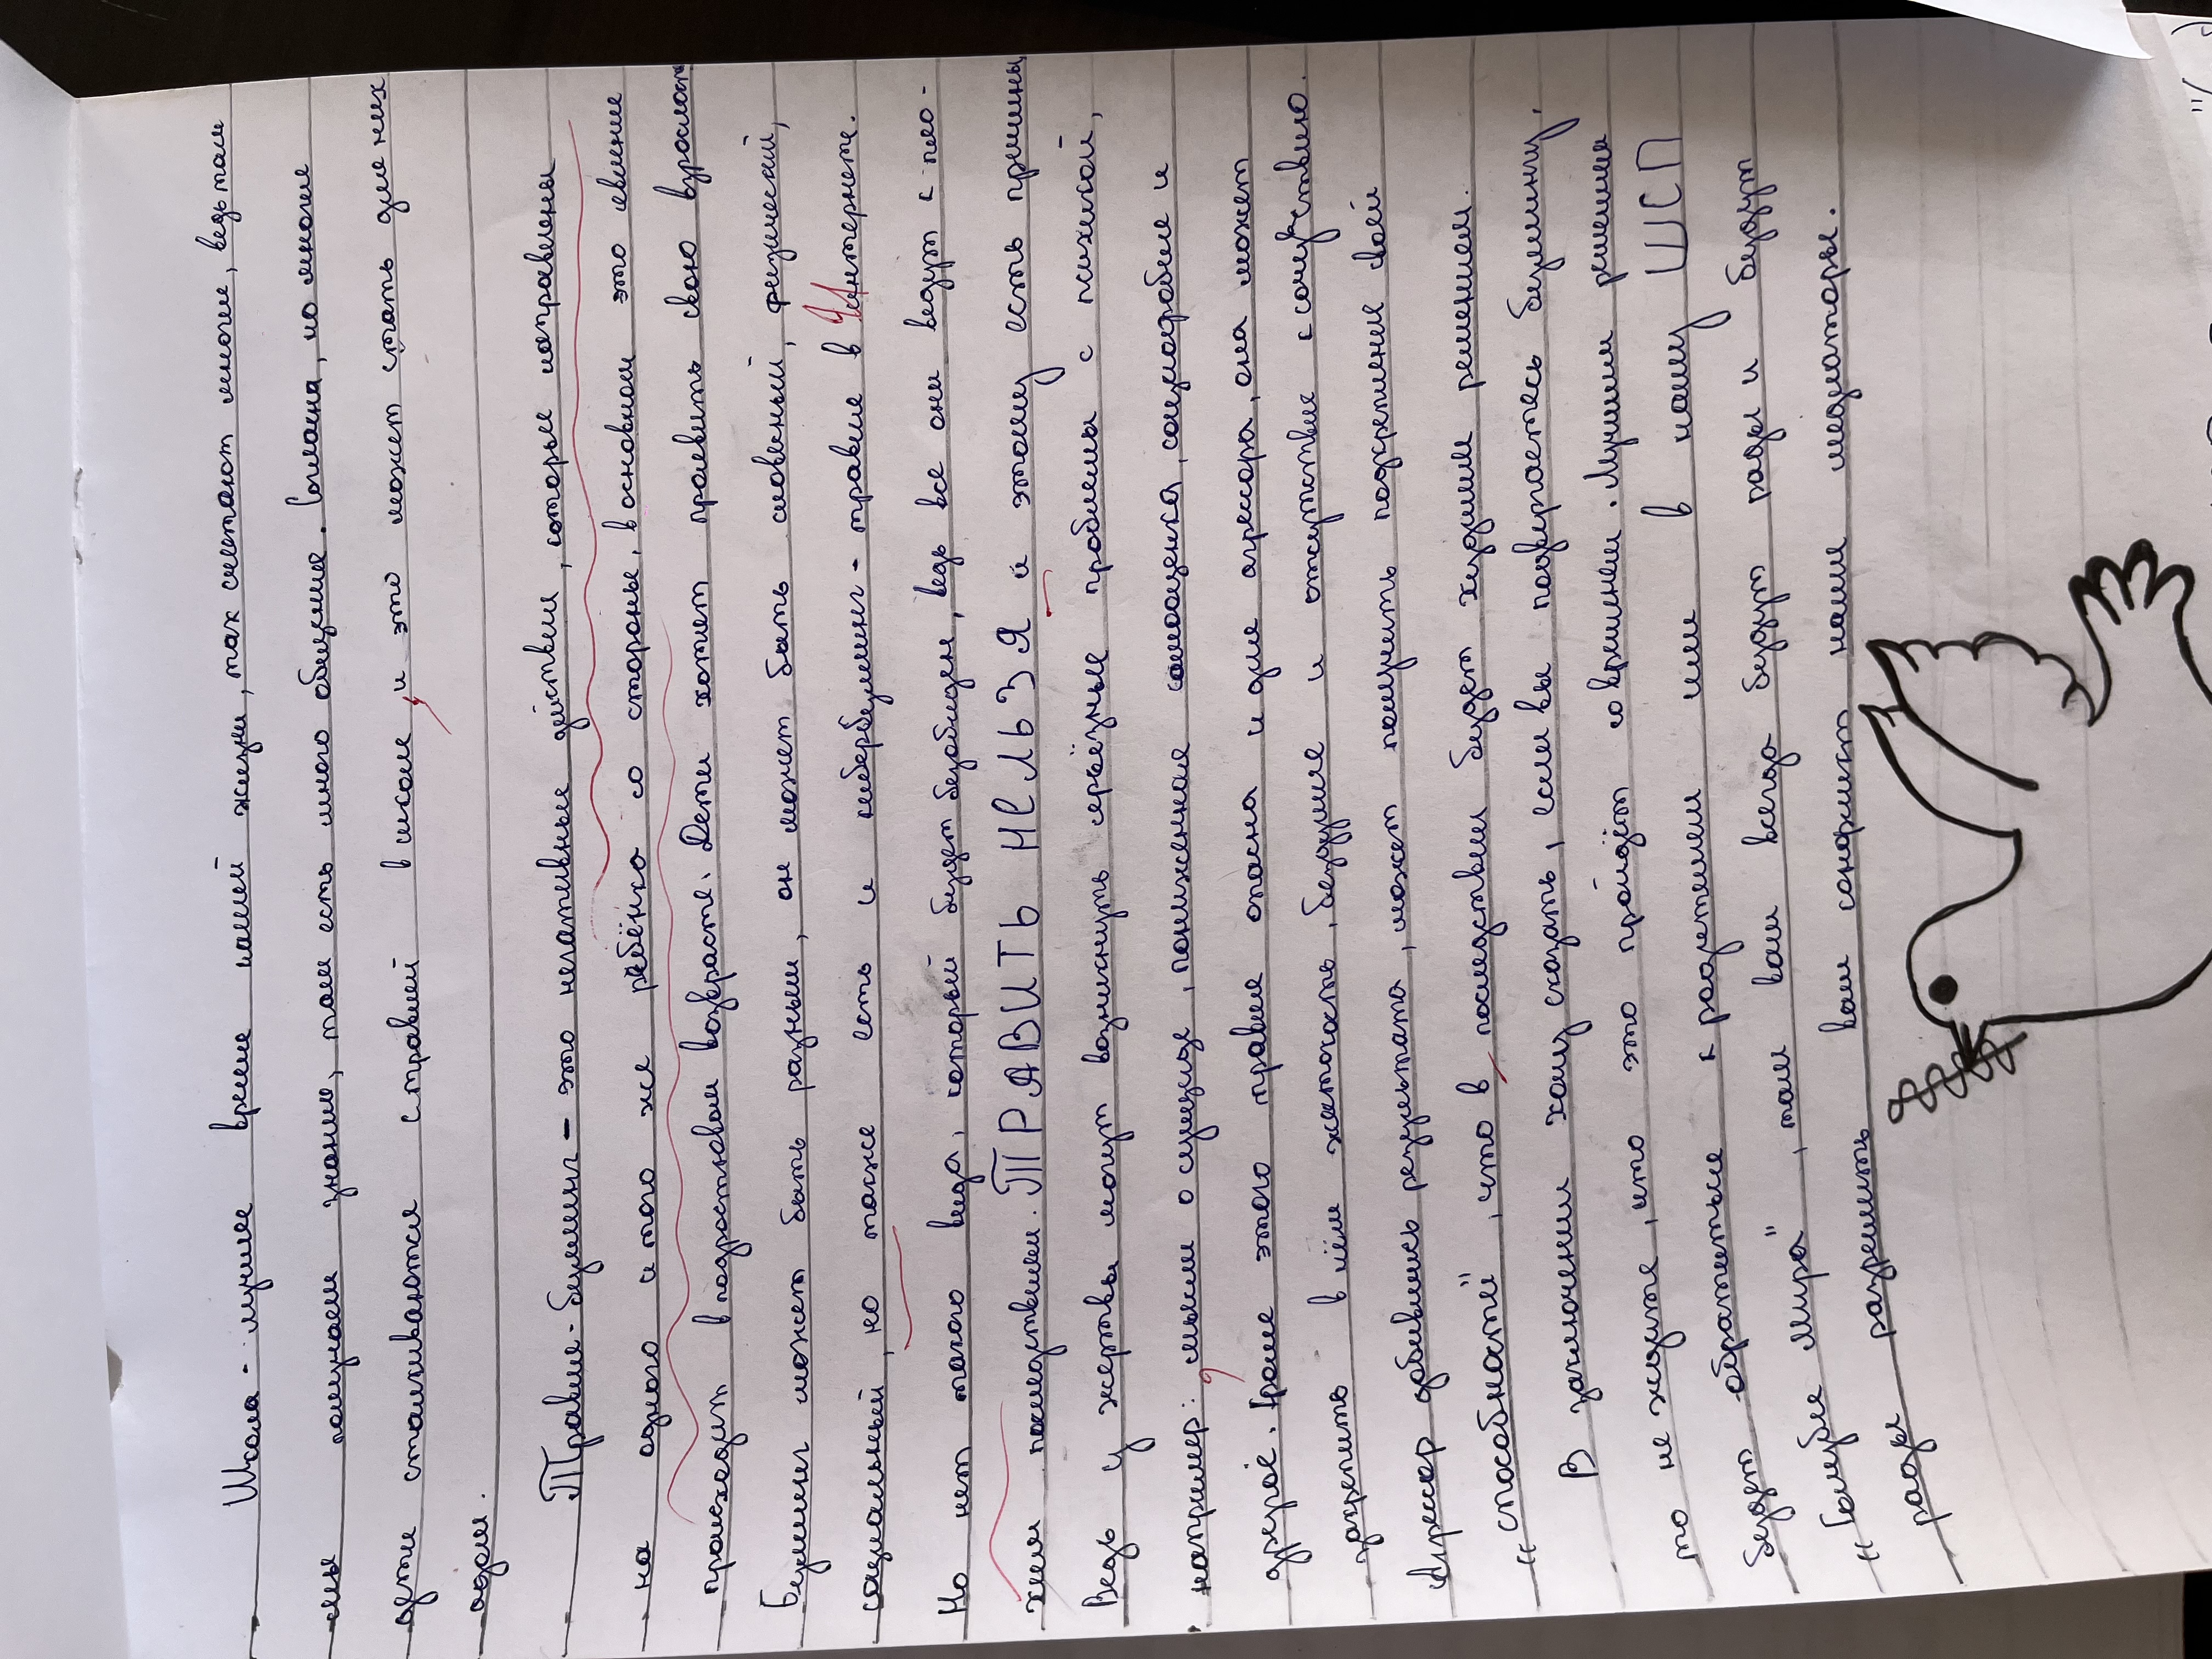 Школа - лучшее время нашей жизни, так считают многие, ведь там
мы получаем знания, там есть много общения. Солгана, но многие
дети сталкиваются с травлей в школе, и это может стать для них
адом.
Травля-буллинг - это негативные действия, которые направлены
на одного и того же ребёнка со стороны, в основном это явление
происходит в подростковом возврасте. Дети хотят проявить свою взрослость
Буллинг может быть разным, он может быть словесный, физический,
социальный, но также есть и кибербуллинг - травля в Интернете.
Но нет такого вида, который будет безобиден, ведь все они ведут к пло-
хим последствиям. ТРАВИТЬ НЕЛЬЗЯ и этому есть причины
Ведь у жертвы могут возникнуть серьёзные проблемы с психикой,
например: мысли о суициде, пониженная самооценка, социофобия и
другое. Кроме этого травля опасна и для агрессора, она может
закрепить в нём жестокость, бездушие и отсутствие к сочувствию.
Агрессор добившись результата, может получить подкрепление своей
"способности", что в последствии будет худшим решением.
В заключении хочу сказать, если вы подверглись буллингу,
то не ждите, что это пройдёт со временем. Лучшим решением
будет обратиться к родителям или в нашу ШСП
"Голубь мира", там вам всегда будут рады и будут
рады разрешить ваш конфликт наши медиаторы.